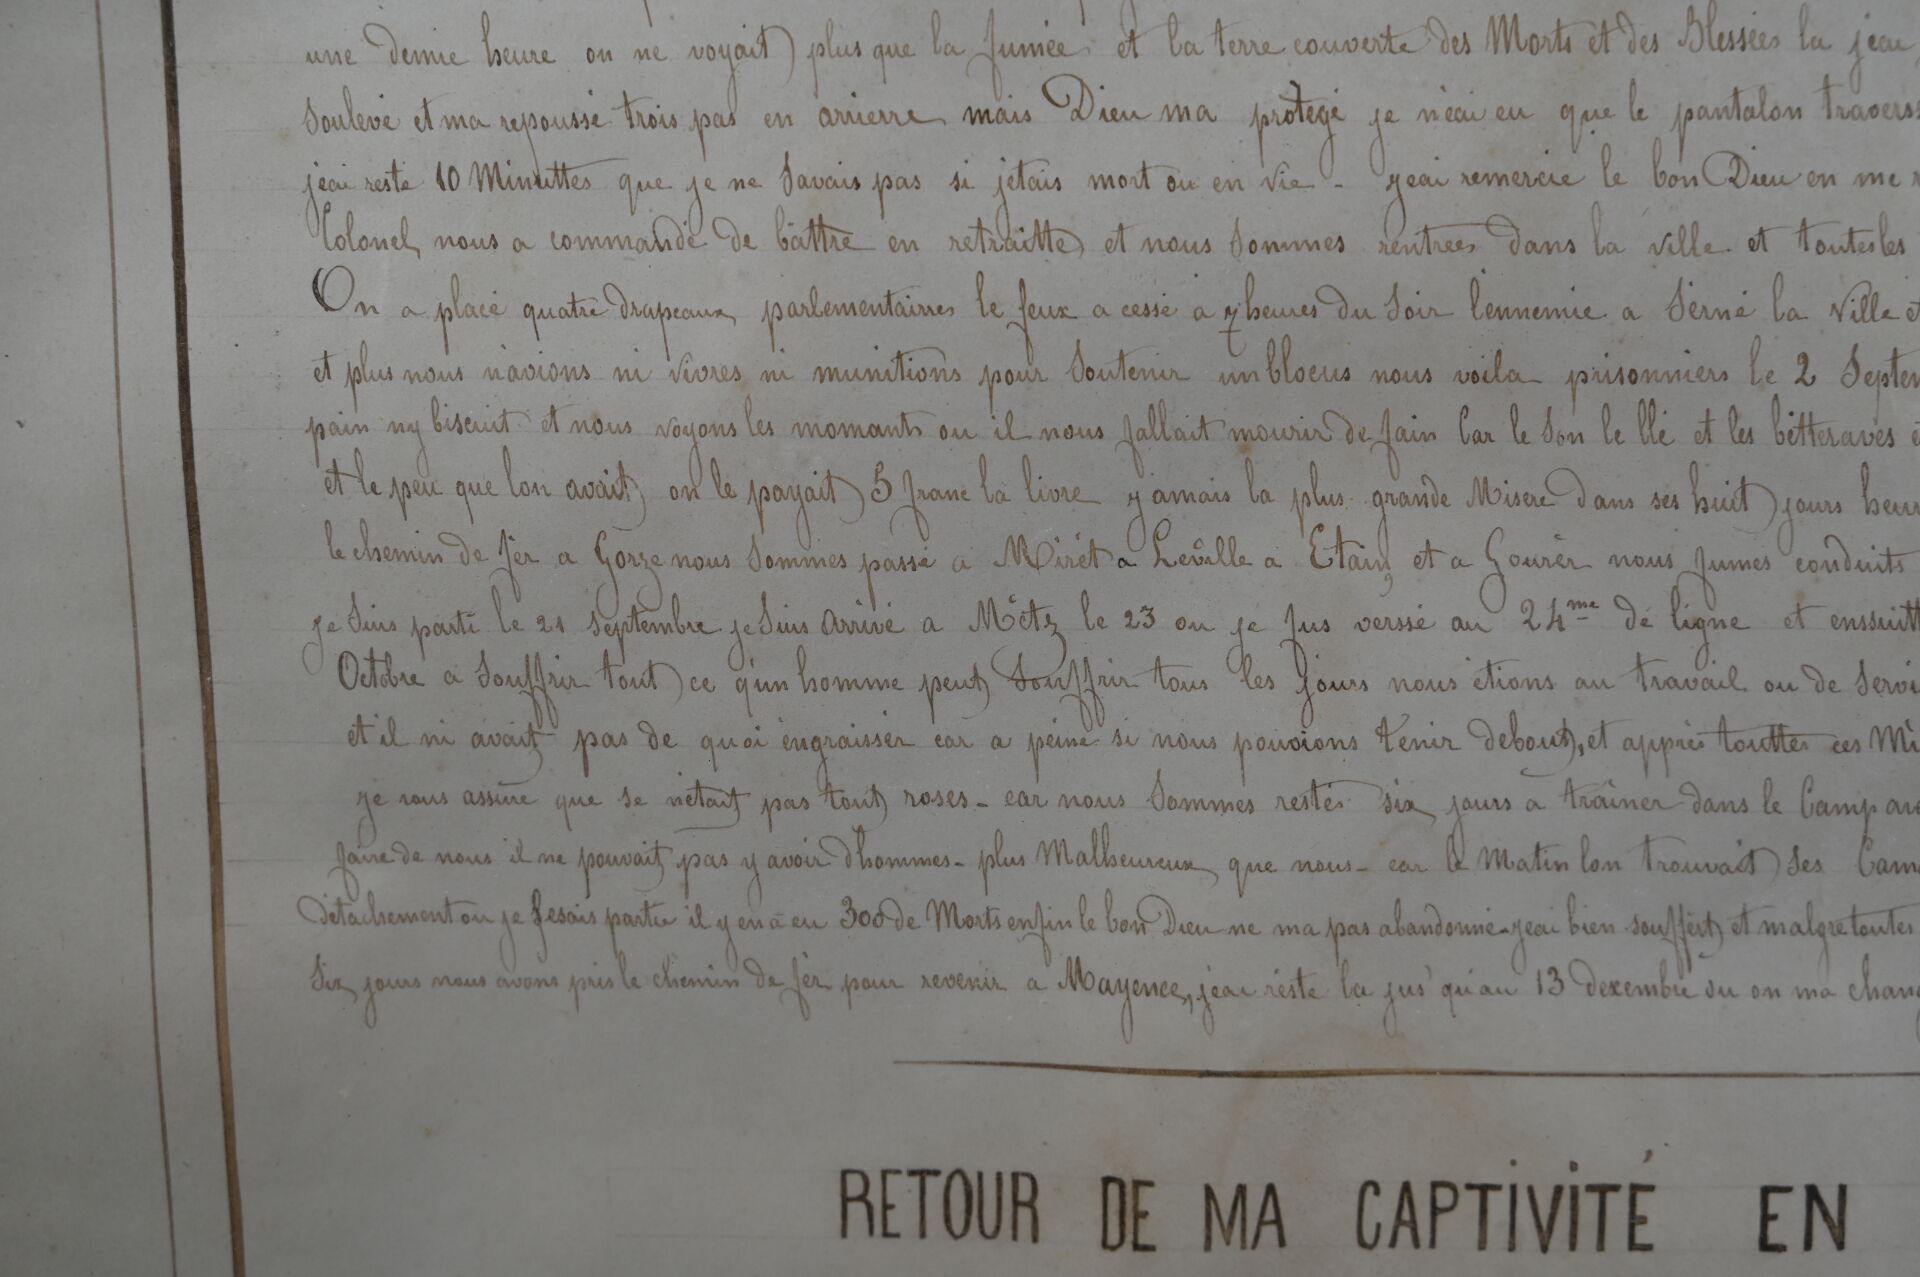 une demie heure on ne voyait plus que la fumée et la terre couverte des Morts et des Blessées la jeai
Soulevé et ma repoussé trois pas en arrierre mais Dieu ma protégé je néai eu que le pantalon travers
jeai resté 10 Minuttes que je ne Savais pas si jétais mort ou en vie - yeai remercié le bon Dieu en me
Colonel nous a commandé de bâttre en retraitte et nous Sommes rentrées dans la ville et toutes les
On a placé quatre drapeaux parlementairres le feux a cessé a 7 heures du Soir lennemie a Sérné la Ville et
et plus nous návions ni vivres ni munitions pour Soutenir un blocus nous voila prisonniers le 2 Septem
pain ny biscuit et nous voyons les momants ou il nous fallait mourir de fain Car le Son le blé et les bétteraves
et le peu que lon avait on le payait 5 franc la livre yamais la plus grande Misere dans ses huit jours heur
le chemin de fèr a Gorze nous Sommes passé a Mirét a Leville a Etain, et a Gourér nous fumes conduits
je Suis parti le 21 Septembre je Suis Arrivé a Métz le 23 ou je fus verssé au 24me de ligne et enssuitt
Octobre a Souffrir tout ce qúun homme peut Souffrir tous les jours nous étions au travail ou de Servi
et il ni avait pas de quoi éngraissér car a peine si nous pouvions ténir debout, et apprés touttes ces Mi
je vous assure que se nétait pas tout roses - car nous Sommes restés six jours a traîner dans le Camp
faire de nous il ne pouvait pas y avoir dhommes - plus Malheureux que nous - car le Matin lon trouvait Ses Cam
détachement ou je fesais partie il y en a eu 300 de Morts enfin le bon Dieu ne ma pas abandonné - jeai bien souffért et malgre toutes
Six jours nous avons pris le chemin de fér pour revenir a Mayence, jeai résté la jus'qu'au 13 dexembre ou on ma chang
RETOUR DE MA CAPTIVITÉ EN